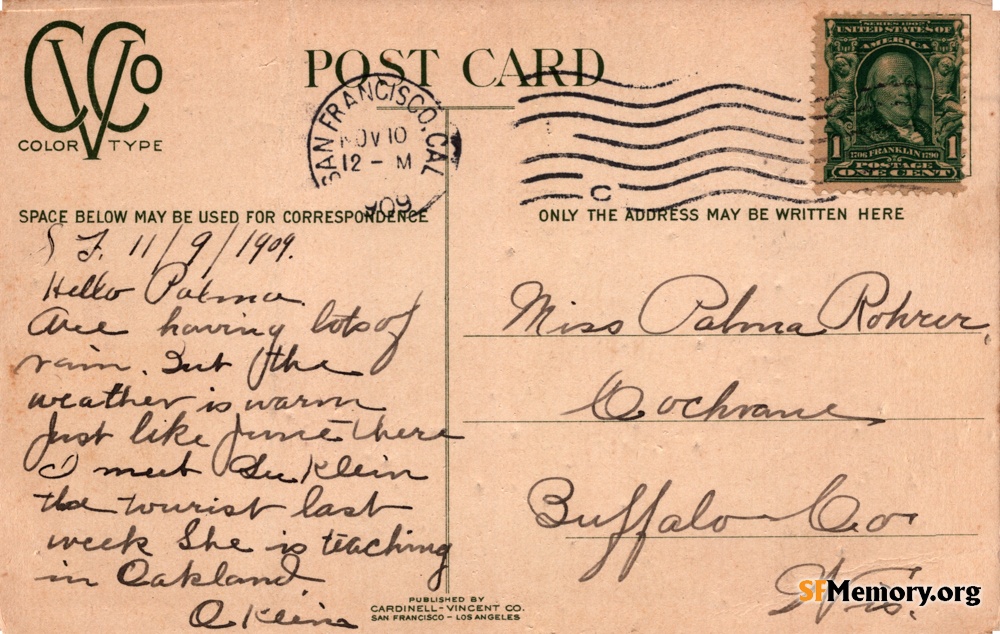 CVCo
COLOR TYPE
POST CARD
SAN FRANCISCO, CAL.
NOV 10
12 - M
'09
C
SERIES 1902
UNITED STATES OF
AMERICA
1 1
1706 FRANKLIN 1790
POSTAGE
ONE CENT
SPACE BELOW MAY BE USED FOR CORRESPONDENCE
S F. 11/9/1909.
Hello Palma.
Are having lots of
rain. But the
weather is warm
just like June there
I meet Klein
the tourist last
week She is teaching
in Oakland
O Klein
ONLY THE ADDRESS MAY BE WRITTEN HERE
Miss Palma Rohrer,
Cochrane
Buffalo Co
Wis.
PUBLISHED BY
CARDINELL-VINCENT CO.
SAN FRANCISCO - LOS ANGELES
SFMemory.org